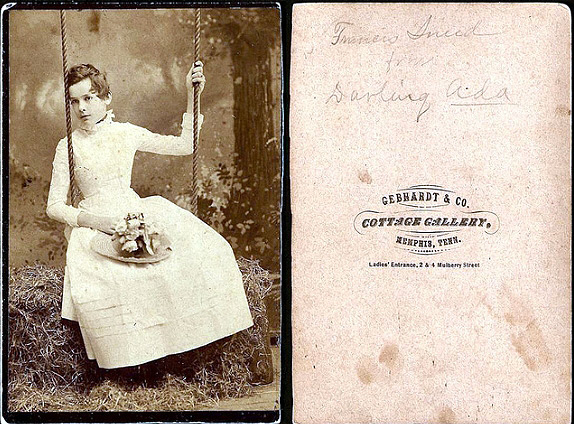 Francis Sneed
from
Darling Ada
GEBHARDT & CO.
COTTAGE GALLERY,
MEMPHIS, TENN.
Ladies' Entrance, 2 & 4 Mulberry Street